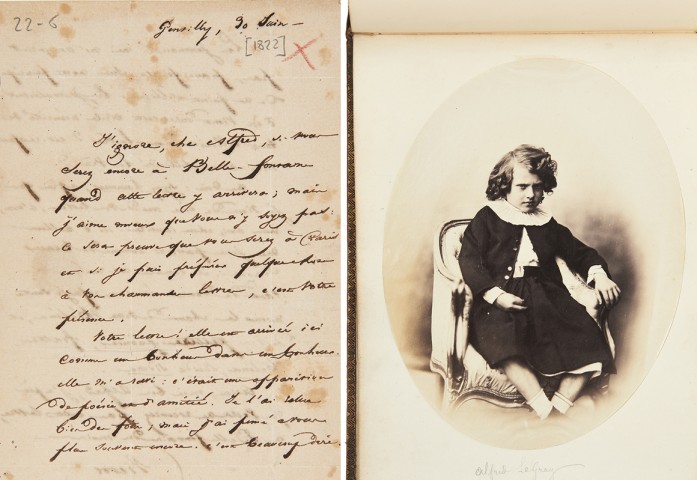 22-6
Gentilly, 30 Juin —
[1822]
J'ignore, cher Alfred, si vous
serez encore à Belle-fontaine
quand cette lettre y arrivera ; mais
j'aime mieux que vous n'y soyez pas :
ce sera preuve que vous serez à Paris
et si je puis préférer quelque chose
à votre charmante lettre, c'est votre
présence.
Votre lettre ! elle est arrivée ici
comme un bonheur dans un bonheur.
elle m'a ravi : c'était une apparition
de poésie et d'amitié. Je l'ai relue
bien des fois, mais j'ai pensé à vous
plus souvent encore. c'est beaucoup dire.
Alfred